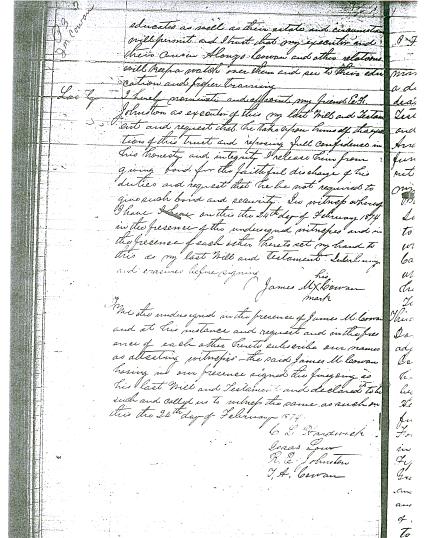 educated as well as their estate and circumstan
will permit and I trust that my executor and
their cousin Alonzo Cowan and other relations
will keep a watch over them and see to their edu
cation and proper training
I hereby nominate and appoint my friend
Johnston as executor of this my last Will and Testam
ent and request that he take upon himself the execu
tion of this trust and reposing full confidence in
his honesty and integrity I release him from
giving bond for the faithful discharge of his
duties and request that he be not required to
give such bond and security. In witness whereof
I have on this the 20th day of February 1874
in the presence of the undersigned witnesses and in
the presence of each other hereto set my hand to
this as my last Will and Testament Interlining
and erasures before signing
his
James M X Cowan
mark
We the undersigned in the presence of James M Cowan
and at his instance and request and in the pres
ence of each other hereto subscribe our names
as attesting witnesses the said James M Cowan
having in our presence signed the foregoing as
his last Will and Testament and declared to be
such and called us to witness the same as such on
this the 20th day of February 1874
C L Hardwick
Low
R. E. Johnston
T. A. Cowan